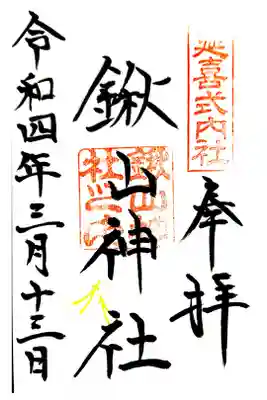 延喜式内社
奉拝
鍬山神社
鍬山神社之印
令和四年三月十三日